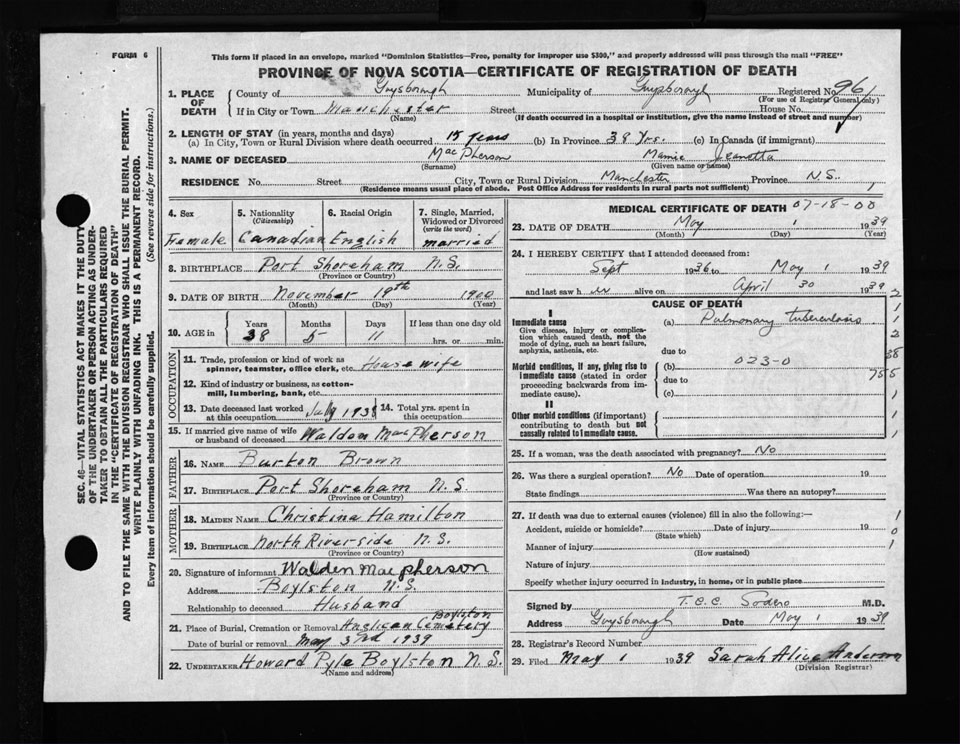 FORM 6
This form if placed in an envelope, marked "Dominion Statistics—Free, penalty for improper use $300," and properly addressed will pass through the mail "FREE"
PROVINCE OF NOVA SCOTIA—CERTIFICATE OF REGISTRATION OF DEATH
1. PLACE OF DEATH County of Guysborough Municipality of Guysborough Registered No. 961
(For use of Registrar General only)
If in City or Town Manchester Street House No.
(Name) (If death occurred in a hospital or institution, give the name instead of street and number)
2. LENGTH OF STAY (in years, months and days)
(a) In City, Town or Rural Division where death occurred 15 years (b) In Province 38 Yrs. (c) In Canada (if immigrant)
3. NAME OF DECEASED MacPherson Mamie Jeanetta
(Surname) (Given name or names)
RESIDENCE No. Street City, Town or Rural Division Manchester Province N.S.
(Residence means usual place of abode. Post Office Address for residents in rural parts not sufficient) 1
4. Sex 5. Nationality (Citizenship) 6. Racial Origin 7. Single, Married, Widowed or Divorced (write the word)
Female Canadian English married
8. BIRTHPLACE Port Shoreham N.S.
(Province or Country)
9. DATE OF BIRTH November 18th 1900
(Month) (Day) (Year)
10. AGE in Years Months Days If less than one day old
38 5 11 hrs. or min.
OCCUPATION
11. Trade, profession or kind of work as spinner, teamster, office clerk, etc. House wife
12. Kind of industry or business, as cotton-mill, lumbering, bank, etc.
13. Date deceased last worked at this occupation July 1938 14. Total yrs. spent in this occupation
15. If married give name of wife or husband of deceased Waldon MacPherson
FATHER
16. NAME Burton Brown
17. BIRTHPLACE Port Shoreham N.S.
(Province or Country)
MOTHER
18. MAIDEN NAME Christina Hamilton
19. BIRTHPLACE North Riverside N.S.
(Province or Country)
20. Signature of informant Walden Macpherson
Address Boylston N.S.
Relationship to deceased Husband
21. Place of Burial, Cremation or Removal Anglican Cemetery Boylston
Date of burial or removal May 3rd 1939
22. UNDERTAKER Howard Pyle Boylston N.S.
(Name and address)
MEDICAL CERTIFICATE OF DEATH 07-18-00
23. DATE OF DEATH May 1 1939
(Month) (Day) (Year)
24. I HEREBY CERTIFY that I attended deceased from:
Sept 1936 to May 1939
and last saw h er alive on April 30 1939
CAUSE OF DEATH
I
Immediate cause (a) Pulmonary tuberculosis
Give disease, injury or complication which caused death, not the mode of dying, such as heart failure, asphyxia, asthenia, etc.
due to
(b) 023-0
Morbid conditions, if any, giving rise to immediate cause (stated in order proceeding backwards from immediate cause).
due to
(c)
II
Other morbid conditions (if important) contributing to death but not causally related to immediate cause.
2
1
1
2
38
755
1
1
1
25. If a woman, was the death associated with pregnancy? No
26. Was there a surgical operation? No Date of operation 19
State findings Was there an autopsy?
27. If death was due to external causes (violence) fill in also the following:—
Accident, suicide or homicide? Date of injury 19
(State which)
Manner of injury
(How sustained)
Nature of injury
1
0
1
Specify whether injury occurred in industry, in home, or in public place
Signed by T.C.C. Sodero M.D.
Address Guysborough Date May 1 1939
28. Registrar's Record Number
29. Filed May 1 1939 Sarah Alice Anderson
(Division Registrar)
SEC. 46—VITAL STATISTICS ACT MAKES IT THE DUTY
OF THE UNDERTAKER OR PERSON ACTING AS UNDER-
TAKER TO OBTAIN ALL THE PARTICULARS REQUIRED
IN THE "CERTIFICATE OF REGISTRATION OF DEATH"
AND TO FILE THE SAME WITH THE DIVISION REGISTRAR WHO SHALL ISSUE THE BURIAL PERMIT.
WRITE PLAINLY WITH UNFADING INK. THIS IS A PERMANENT RECORD.
Every item of information should be carefully supplied. (See reverse side for instructions.)